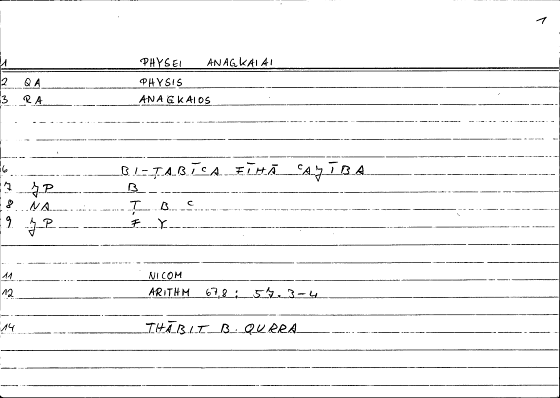 1
1 PHYSEI ANAGKAIAI
2 QA PHYSIS
3 RA ANAGKAIOS
6 BI-ṬABĪʿA FĪHĀ ʿAJĪBA
7 JP B
8 NA Ṭ B ʿ
9 JP F Y
11 NICOM
12 ARITHM 67,8 : 57.3-4
14 THĀBIT B QURRA